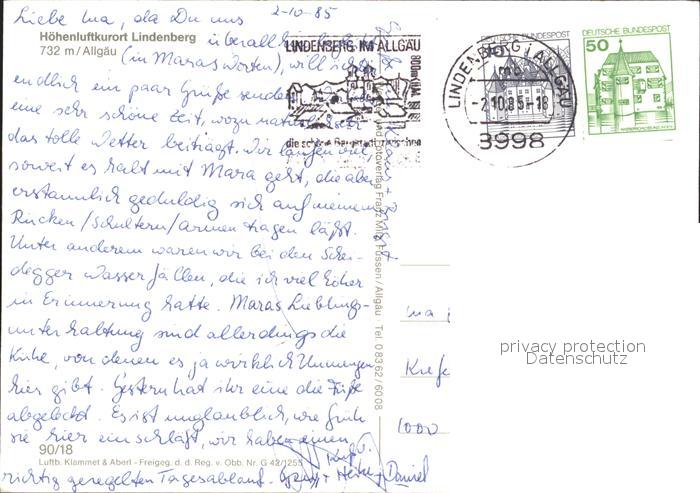 Liebe Ma, da Du uns
2-10-85
Höhenluftkurort Lindenberg
732 m/Allgäu
überall
(in Maras Worten), will ich
endlich ein paar Grüße senden
eine sehr schöne Zeit, wozu
das tolle Wetter beiträgt. Wir laufen viel,
soweit es halt mit Mara geht, die aber
erstaunlich geduldig sich auf meinem
Rücken/Schultern/Armen tragen läßt.
Unter anderem waren wir bei den Schei-
degger Wasserfällen, die ich viel höher
in Erinnerung hatte. Maras Lieblings-
unterhaltung sind allerdings die
Kühe, von denen es ja wirklich Unmengen
hier gibt. Gestern hat ihr eine die Füße
abgeleckt. Es ist unglaublich, wie früh
sie hier einschläft, wir haben einen
richtig geregelten Tagesablauf.
Daniel
90/18
Luftb. Klammet & Aberl - Freigeg. d. d. Reg. v. Obb. Nr. G 42/1255
Fotoverlag Franz Milz Füssen/Allgäu Tel. 08362/6008
LINDENBERG IM ALLGÄU
800m ü.M.
LINDENBERG i ALLGÄU
-2.10.85-18
3998
DEUTSCHE BUNDESPOST
DEUTSCHE BUNDESPOST
50
1000
privacy protection
Datenschutz